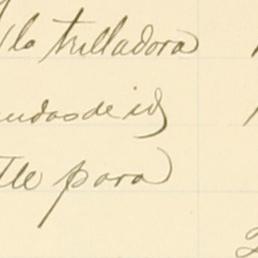 lo trilladora
udas de id
tle para